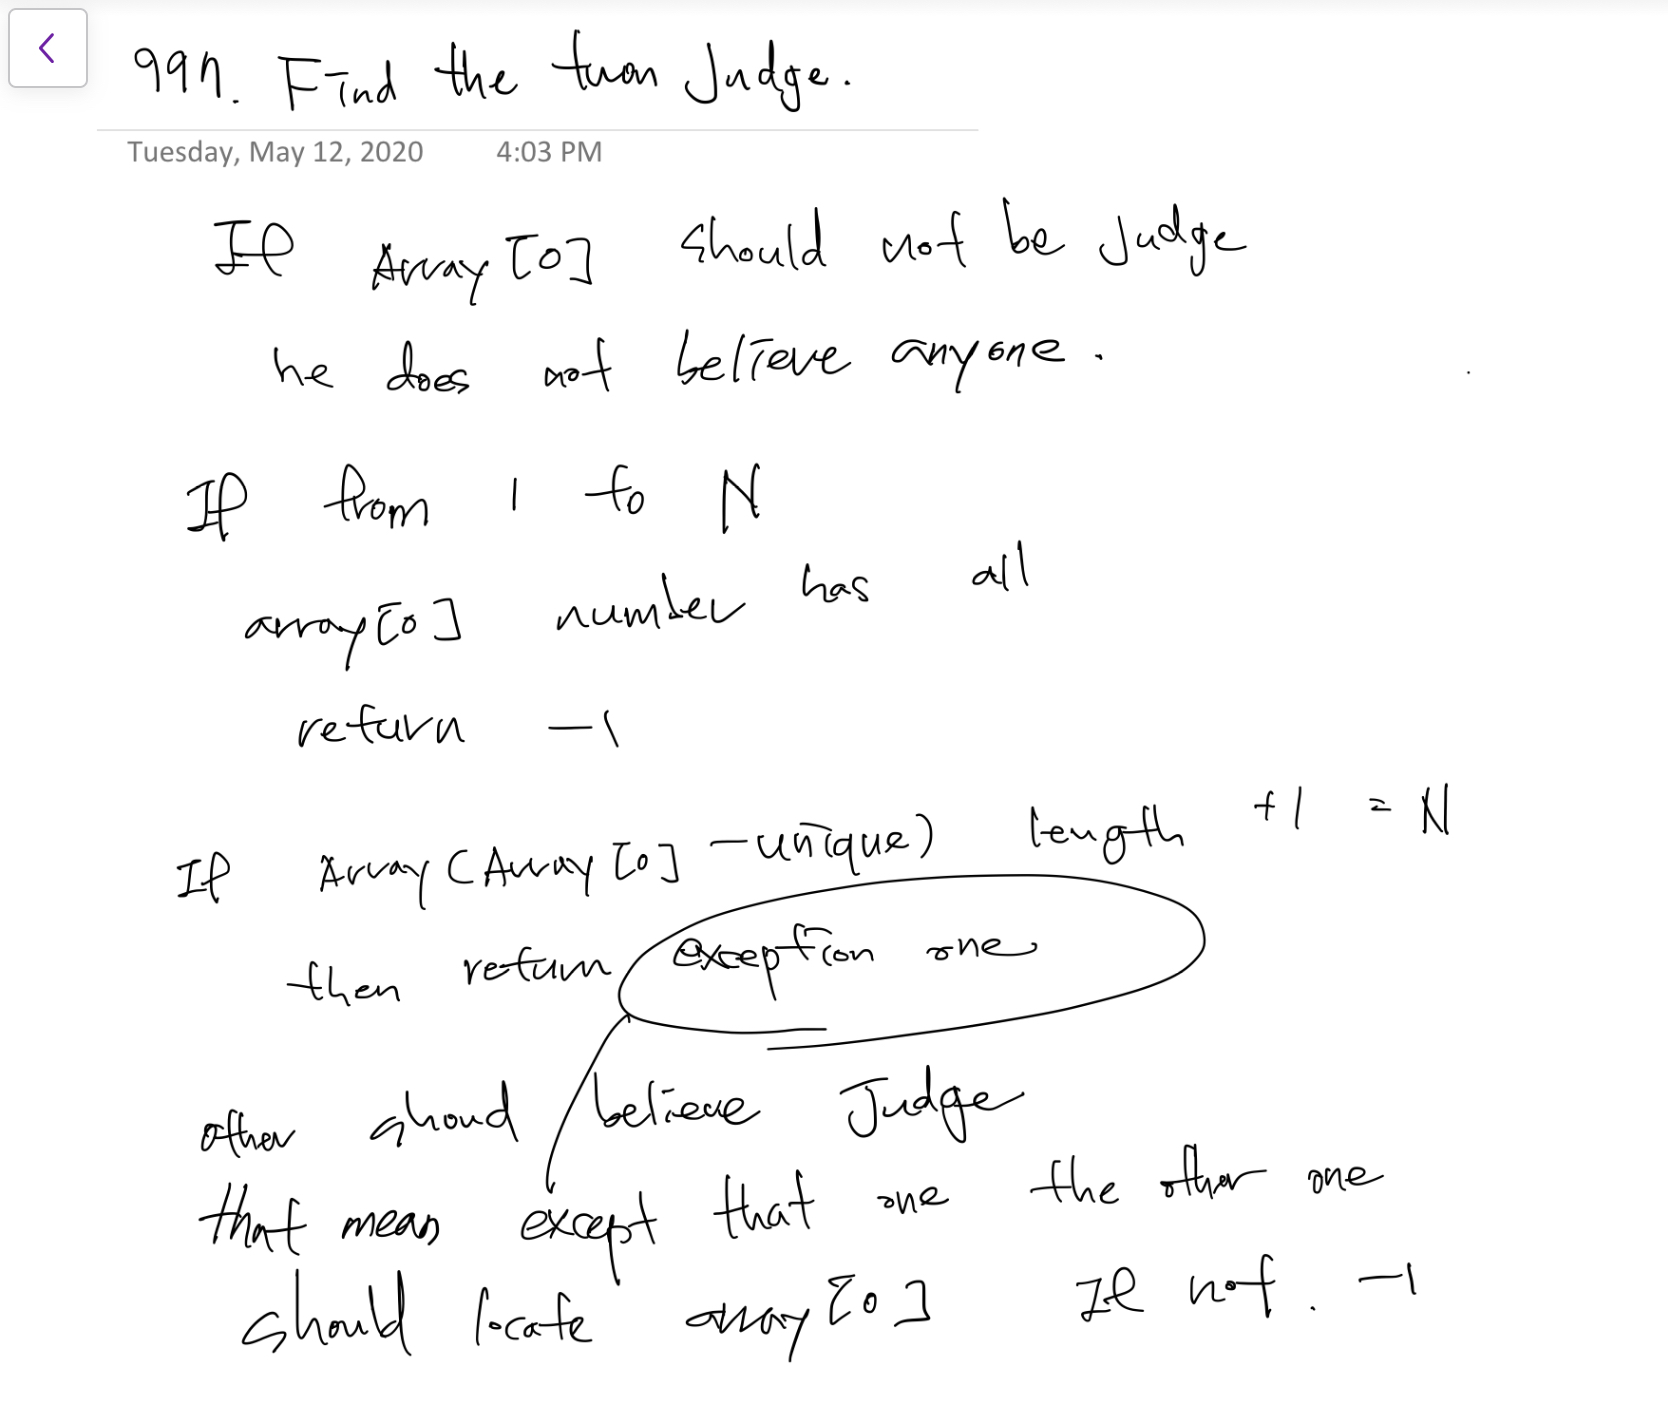 997. Find the town Judge.
Tuesday, May 12, 2020 4:03 PM
If Array [0] should not be Judge
he does not believe anyone.
If from 1 to N
array [0] number has all
return -1
If Array (Array [0] - unique) length +1 = N
then return exception one
other shoud believe Judge
that mean except that one the other one
should locate array [0] If not. -1